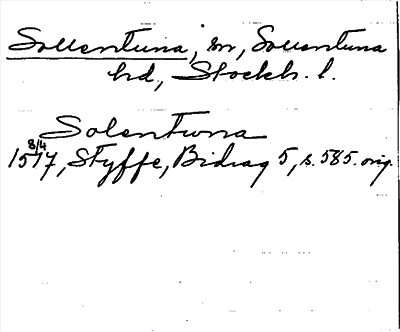 Sollentuna, sn, Sollentuna
hd, Stockh. l.
Solentwna
8/4
1517, Styffe, Bidrag 5, s. 585. orig.